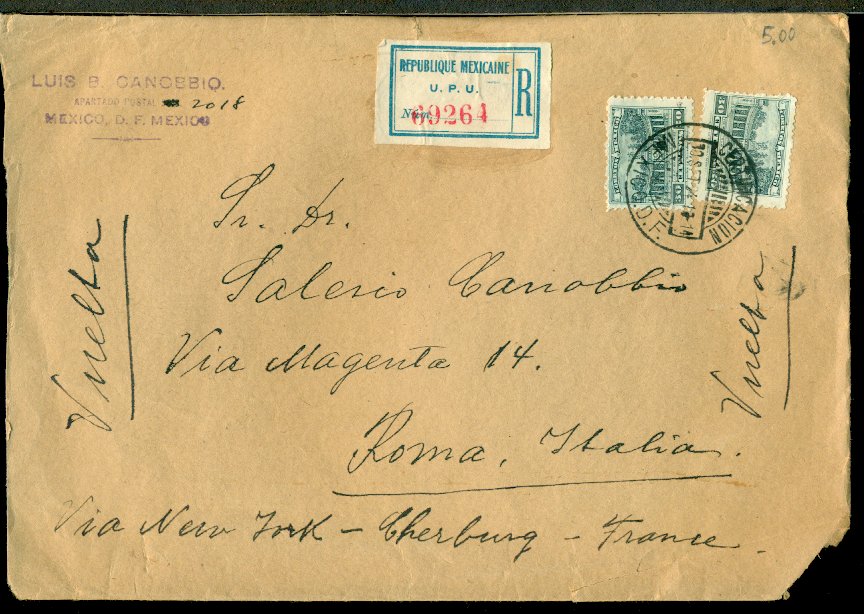 5.00
LUIS B. CANOBBIO.
APARTADO POSTAL 2018
MEXICO, D. F. MEXICO
REPUBLIQUE MEXICAINE
U. P. U.
R
Núm. 69264
CERTIFICACION
MEXICO. D. F.
Sr. Dr.
Salerio Canobbio
Via Magenta 14.
Roma, Italia.
Via New York - Cherburg - France.
Vuelta
Vuelta